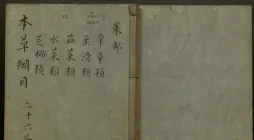 菜部
葷辛類
柔滑類
蓏菜類
水菜類
芝栭類
本草綱目
二十六之